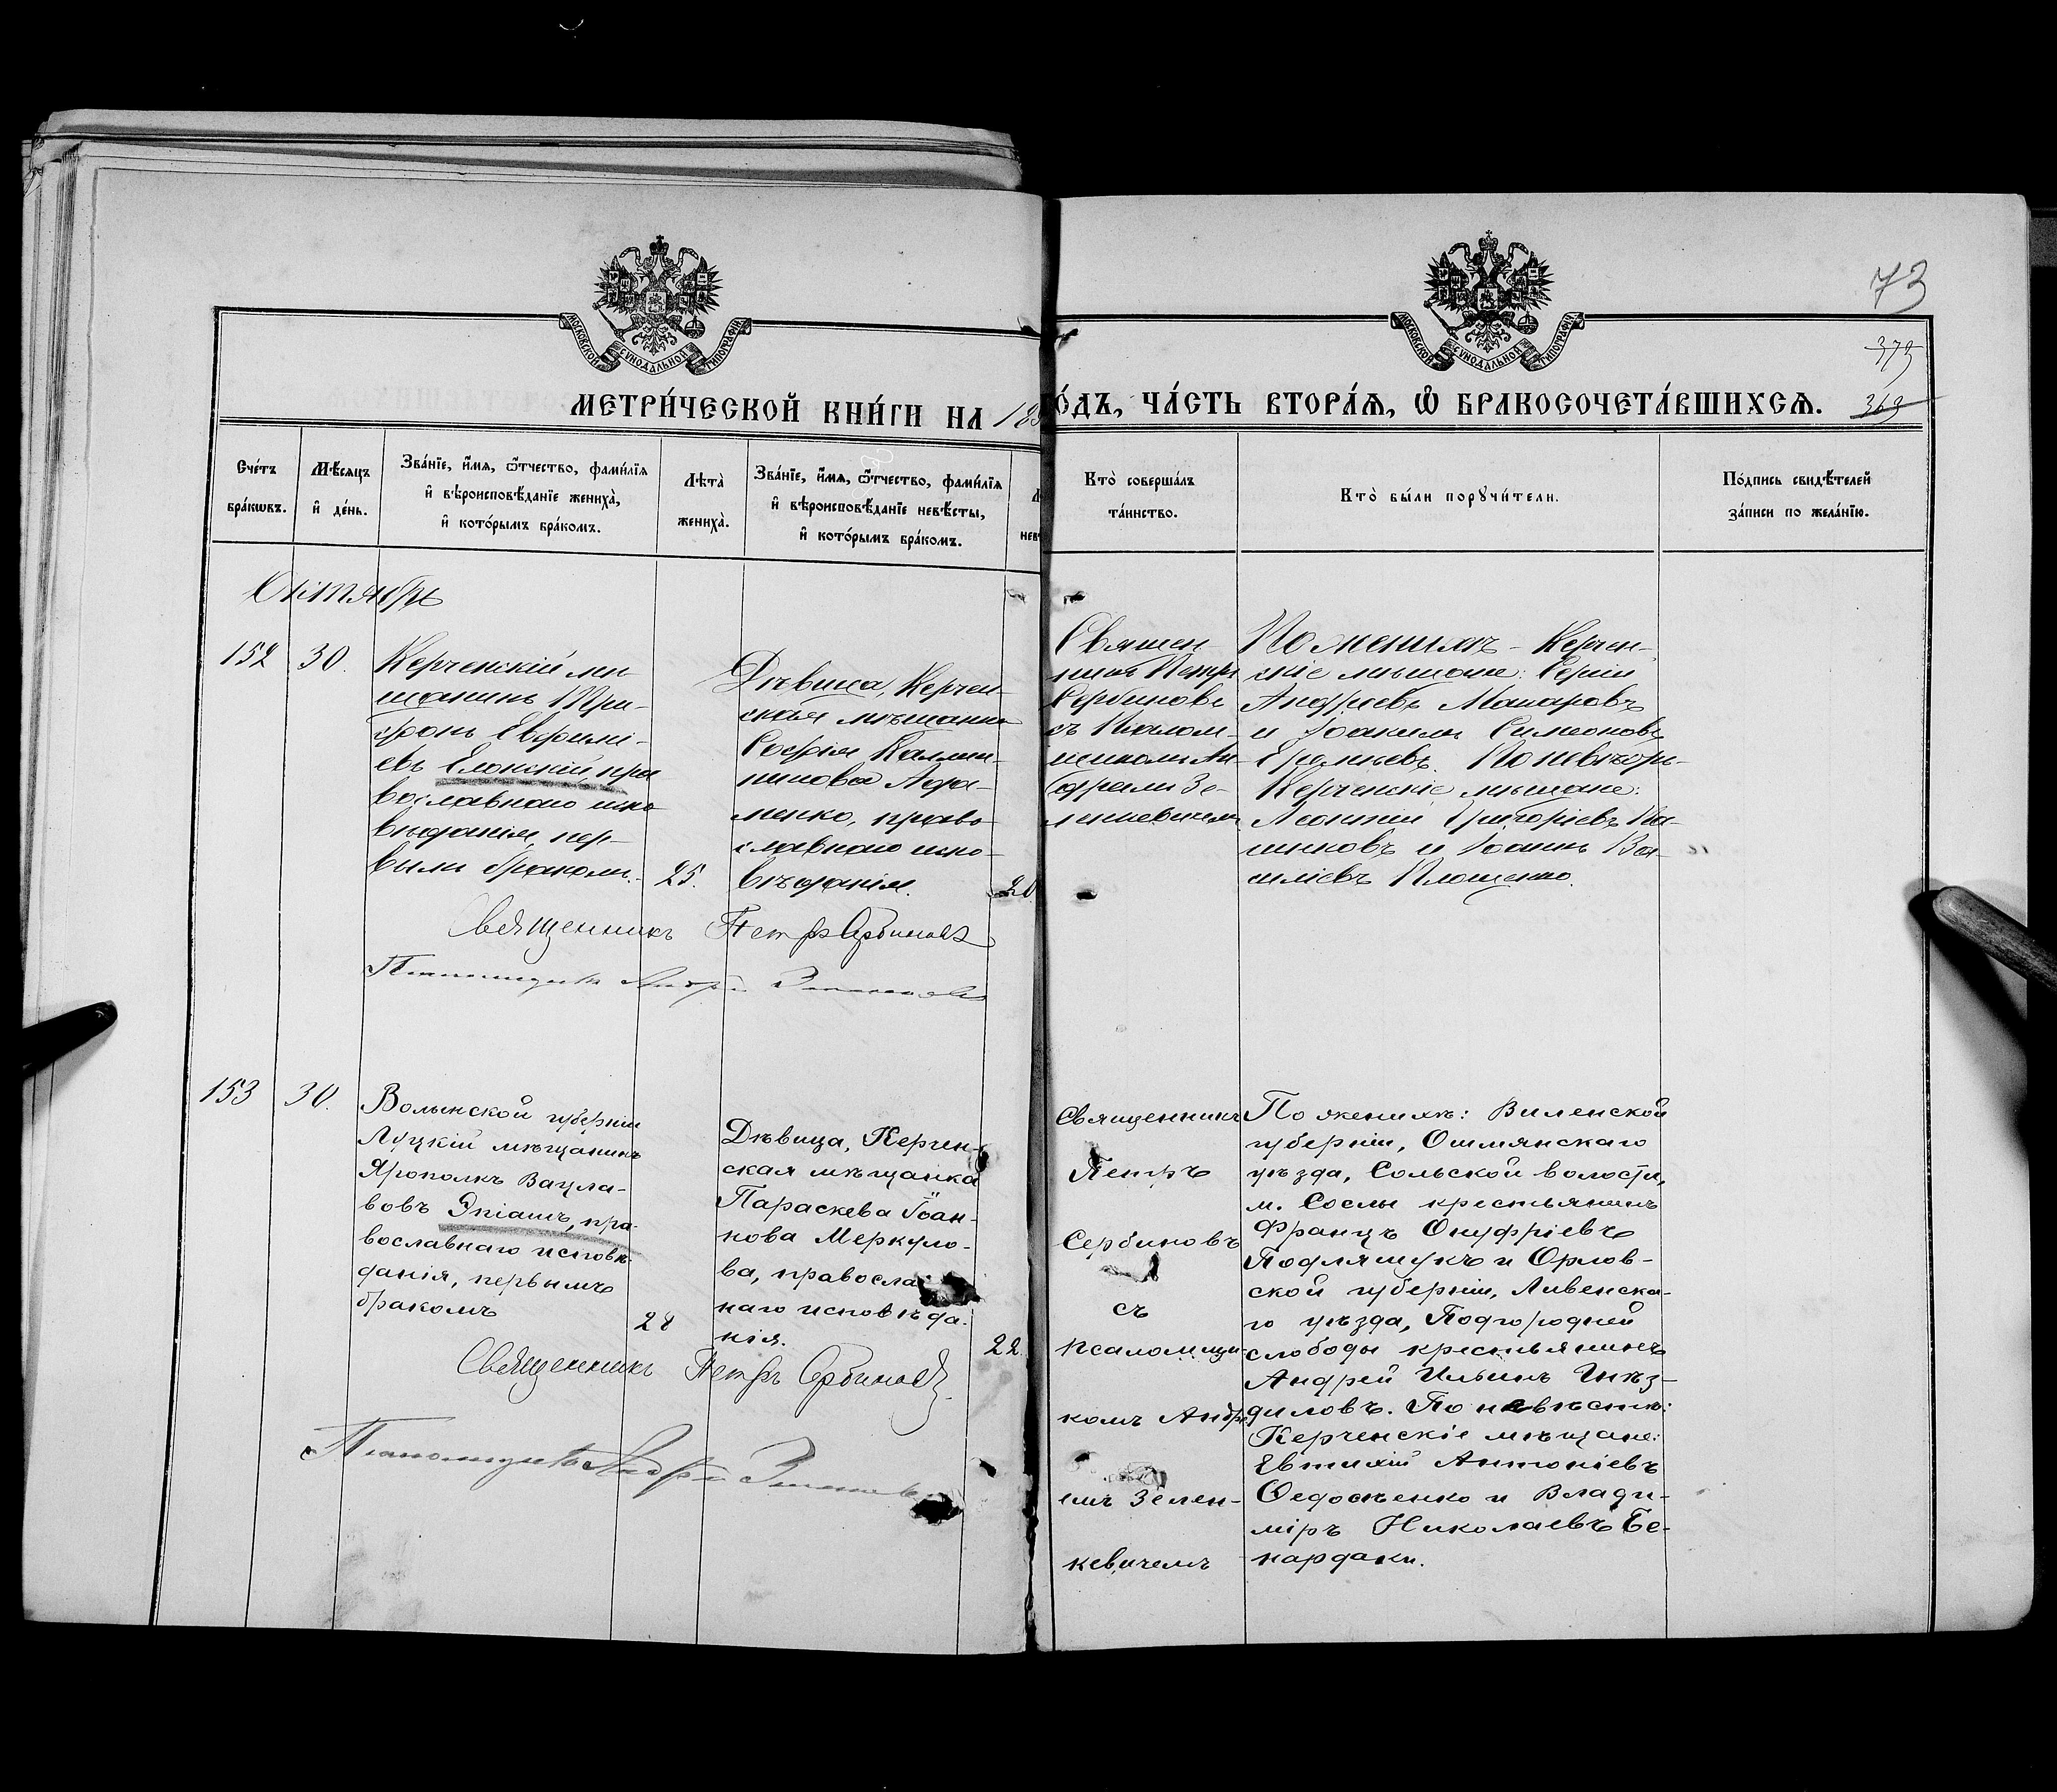 73
373
369
МОСКОВСКОЙ СѴНОДАЛЬНОЙ ТИПОГРАФІИ
МОСКОВСКОЙ СѴНОДАЛЬНОЙ ТИПОГРАФІИ
МЕТРИ́ЧЕСКОЙ КНИ́ГИ НА 189
О́ДЪ, ЧА́СТЬ ВТОРА́Я, Ѽ БРАКОСОЧЕТА́ВШИХСЯ.
Сче́тъ
бра́кωвъ.
Мѣ́сяцъ
и҆ де́нь.
Зва́нїе, и҆́мя, ѻ҆́тчество, фами́лїя
и҆ вѣроисповѣ́данїе жениха̀,
и҆ кото́рымъ бра́комъ.
Лѣта̀
жениха̀.
Зва́нїе, и҆́мя, ѻ҆́тчество, фами́лїя
и҆ вѣроисповѣ́данїе невѣ́сты,
и҆ кото́рымъ бра́комъ.
Кто̀ соверша́лъ
та́инство.
Кто̀ бы́ли порꙋчи́тели.
По́дпись свидѣ́телей
за́писи по жела́нїю.
Октябрь
152
30.
Керченскій мѣ-
щанинъ Три-
фонъ Евфимі-
евъ Елонскій, пра
вославнаго испо
вѣданія, пер-
вымъ бракомъ.
25.
Дѣвица, Керчен-
ская мѣщанка
Софія
Афа-
ненко, право
славнаго испо-
вѣданія.
20
Священ
никъ Петръ
Сербиновъ
съ Псалом-
щикомъ Ан-
дреемъ Зе-
ленкевичемъ
По женихѣ - Керчен-
скіе мѣщане: Сергій
Андреевъ Макаровъ
и Іоакимъ Симеоновъ
По невѣстѣ-
Керченскіе мѣщане:
Леонтій Григоріевъ
и Іоаннъ Ва-
силіевъ Площенко.
Священникъ Петръ Сербиновъ
Псаломщикъ Андрей
153
30.
Волынской губерніи
Луцкій мѣщанинъ
Ярополкъ Вацла-
вовъ Эпіашъ, пра-
вославнаго исповѣ-
данія, первымъ
бракомъ
28
Дѣвица, Керчен-
ская мѣщанка
Параскева Іоан-
нова Меркуло-
ва, правосла
наго исповѣда-
нія.
22.
Священникъ
Петръ
Сербиновъ
съ
псаломщи-
комъ Андре
емъ Зелен-
кевичемъ
По женихѣ: Виленской
губерніи, Ошмянскаго
уѣзда, Сольской волости,
м. Сослы крестьянинъ
Францъ Онуфріевъ
Подляшукъ и Орлов-
ской губерніи, Ливенска-
го уѣзда, Подгородней
слободы крестьянинъ
Андрей Ильинъ Гнѣз-
диловъ. По невѣстѣ:
Керченскіе мѣщане:
Евтихій Антоніевъ
Ѳедосѣенко и Влади-
міръ Николаевъ Бе-
нардаки.
Священникъ Петръ Сербиновъ
Псаломщикъ Андрей